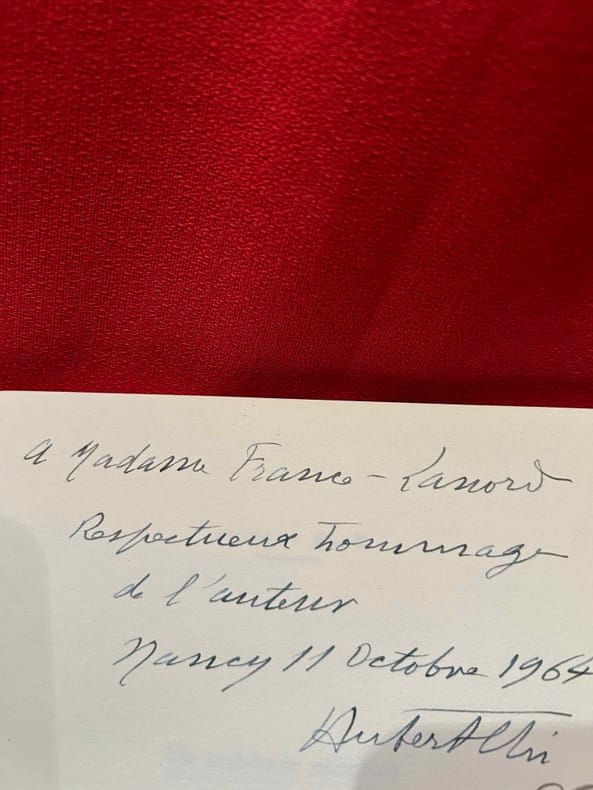 A Madame France-Lanord
Respectueux hommage
de l'auteur
Nancy 11 Octobre 1964